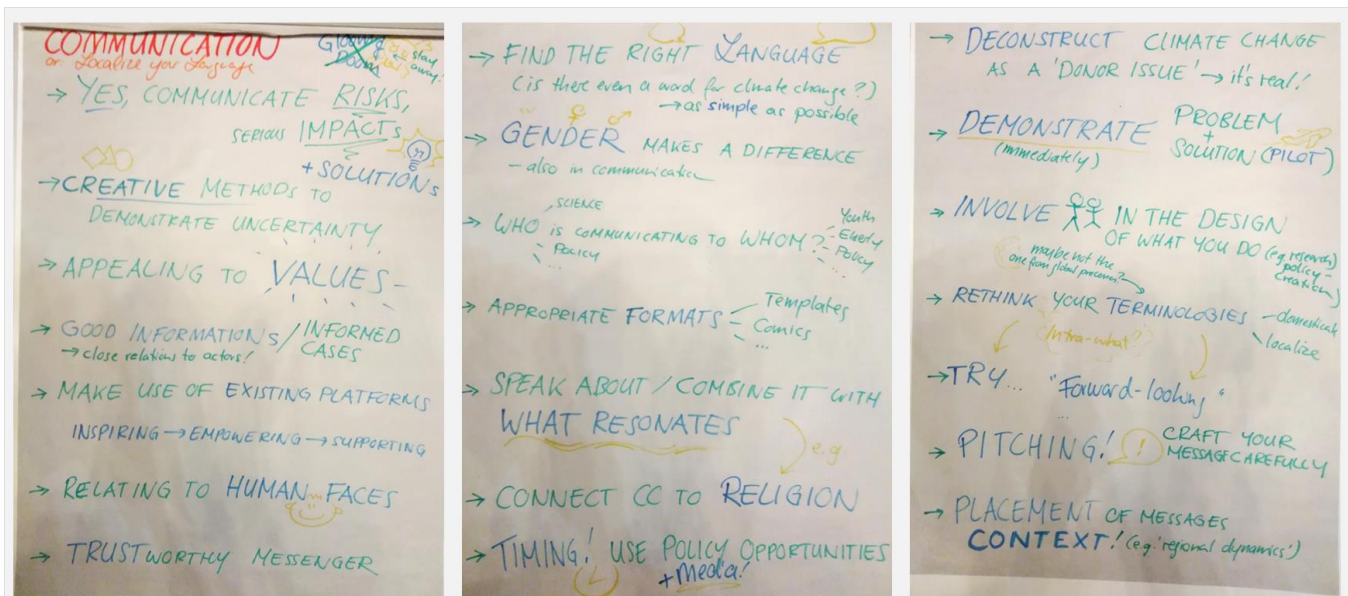 COMMUNICATION
or: Localize your Language
Gloom
Doom
stay away!
→ YES, COMMUNICATE RISKS,
SERIOUS IMPACTS
+ SOLUTIONS
→ CREATIVE METHODS TO
DEMONSTRATE UNCERTAINTY
→ APPEALING TO VALUES
→ GOOD INFORMATIONS / INFORMED CASES
→ close relations to actors!
→ MAKE USE OF EXISTING PLATFORMS
INSPIRING → EMPOWERING → SUPPORTING
→ RELATING TO HUMAN FACES
→ TRUSTWORTHY MESSENGER
→ FIND THE RIGHT LANGUAGE
(is there even a word for climate change?)
→ as simple as possible
→ GENDER MAKES A DIFFERENCE
- also in communication
SCIENCE
→ WHO IS COMMUNICATING TO WHOM?
Policy
...
Youth
Elderly
Policy
...
→ APPROPRIATE FORMATS
Templates
Comics
...
→ SPEAK ABOUT / COMBINE IT WITH
WHAT RESONATES
e.g.
→ CONNECT CC TO RELIGION
→ TIMING! USE POLICY OPPORTUNITIES
+ Media!
→ DECONSTRUCT CLIMATE CHANGE
AS A 'DONOR ISSUE' → it's real!
→ DEMONSTRATE
(immediately)
PROBLEM
+
SOLUTION (PILOT)
→ INVOLVE IN THE DESIGN
OF WHAT YOU DO (e.g. research,
policy-
creation)
maybe not the
one from global processes?
→ RETHINK YOUR TERMINOLOGIES
- domesticate
localize
Intra-what?
→ TRY... "Forward-looking"
...
→ PITCHING! ! CRAFT YOUR
MESSAGE CAREFULLY
→ PLACEMENT OF MESSAGES
CONTEXT! (e.g. 'regional dynamics')